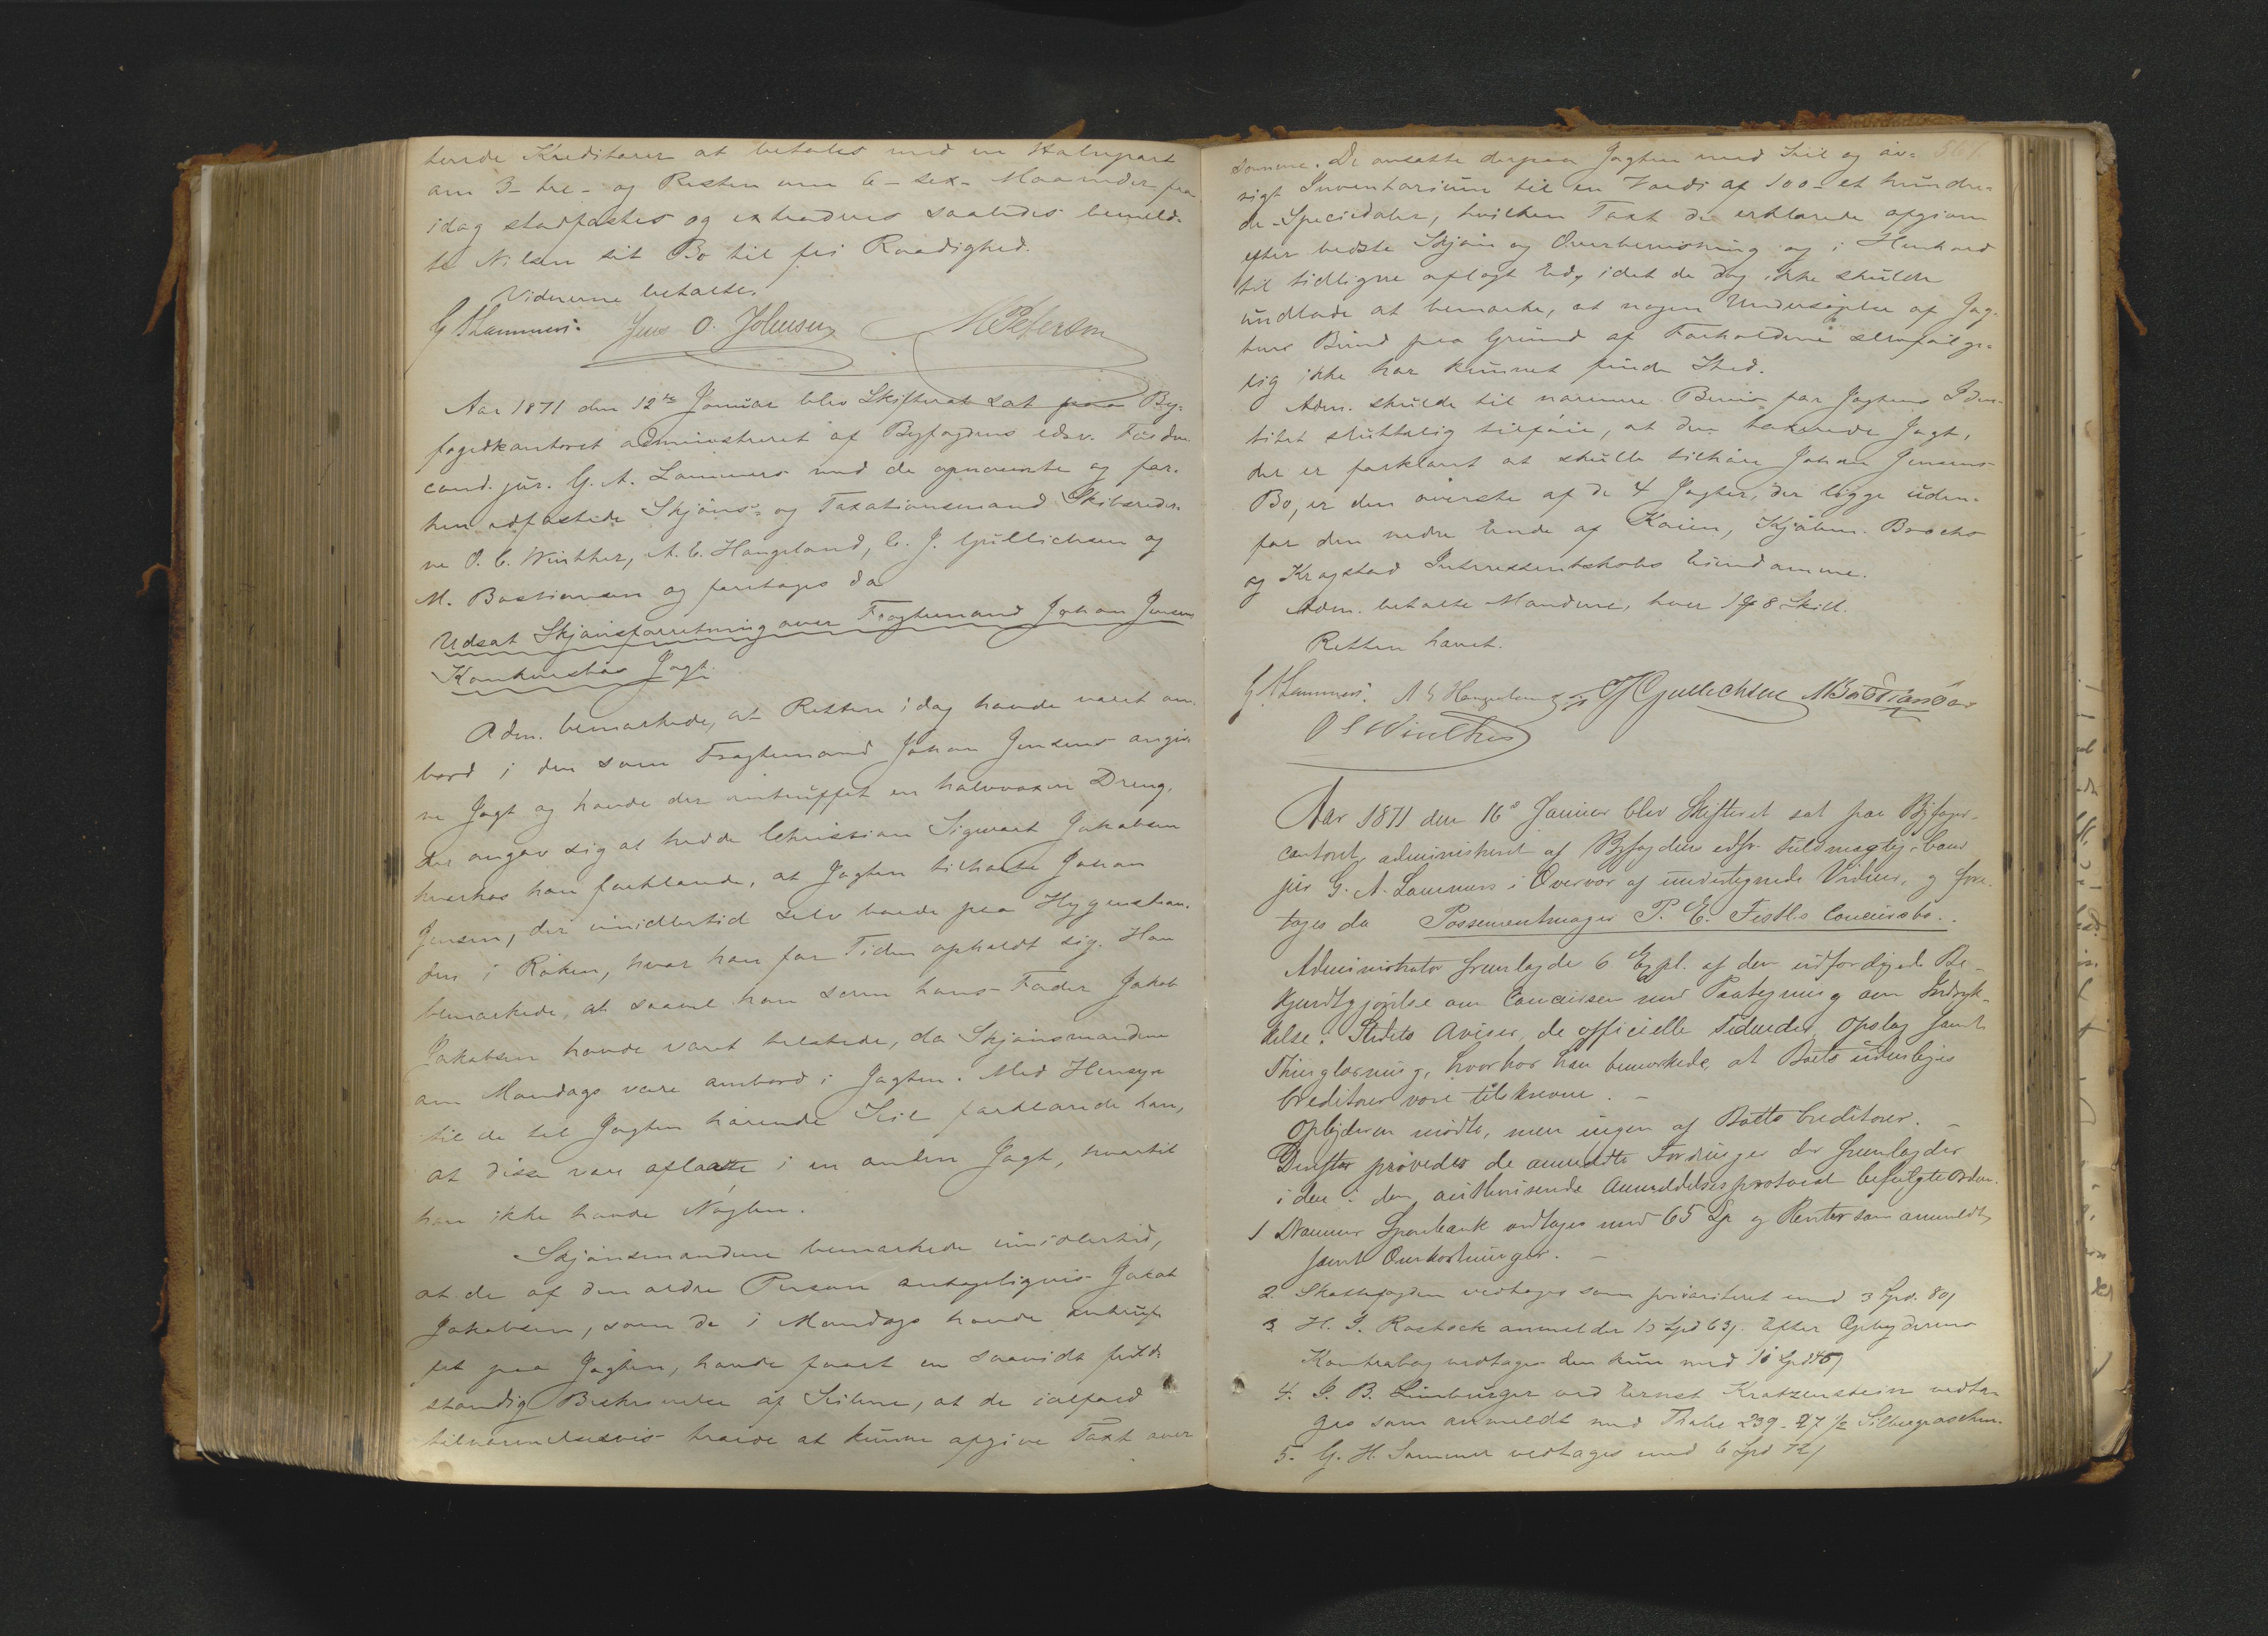 tende Kreditorer at betales med en Halvpart
om 3- tre- og Resten om 6- sex- Maaneder fra
idag stadfæstes og extraderes saaledes bemeld-
te Nilsen sit Bo til fri Raadighed.
Vidnerne betalte.
G A Lammers. Jens O. Johnsen M Peterson
Aar 1871 den 12te Januar blev Skifteret sat paa By-
fogedkontoret administreret af Byfogdens edsv. Fuldm.
cand. jur. G. A. Lammers med de opnævnte og for-
hen edfæstede Skjøns- og Taxationsmænd Skibsrede-
re O. C. Winther, A. E. Haugeland, C. J. Gullichsen og
M. Bastiansen og foretages da
Udsat Skjønsforretning over Fragtemand Johan Jensens
Konkursbos Jagt.
Adm. bemærkede, at Retten idag havde været om-
bord i den som Fragtemand Johan Jensens angiv-
ne Jagt og havde der antruffet en halvvoxen Dreng,
der angav sig at hedde Christian Sigwart Jakobsen
hvorhos han forklarede, at Jagten tilhørte Johan
Jensen, der imidlertid selv boede paa Hyggenstran-
den i Røken, hvor han for Tiden opholdt sig. Han
bemærkede, at saavel han som hans Fader Jakob
Jakobsen havde været tilstede, da Skjønsmændene
om Mandags vare ombord i Jagten. Med Hensyn
til de til Jagten hørende Seil forklarede han,
at disse vare aflaaste i en anden Jagt, hvortil
han ikke havde Nøglen.
Skjønsmændene bemærkede imidlertid,
at de af den ældre Person antageligvis Jakob
Jakobsen, som de i Mandags havde antruf-
fet paa Jagten, havde faaet en saavidt fuld-
stændig Beskrivelse af Seilene, at de ialfald
tilnærmelsesvis troede at kunne afgive Taxt over
samme. De ansatte derpaa Jagten med Seil og øv- 561
rigt Inventarium til en Værdi af 100- et hundre-
de Speciedaler, hvilken Taxt de erklærede afgiven
efter bedste Skjøn og Overbevisning og i Henhold
til tidligere aflagt Ed, idet de dog ikke skulde
undlade at bemærke, at nogen Undersøgelse af Jag-
tens Bund paa Grund af Forholdene selvfølge-
lig ikke har kunnet finde Sted.
Adm. skulde til nærmere Bevis for Jagtens Iden-
titet sluttelig tilføie, at den taxerede Jagt,
der er forklaret at skulle tilhøre Johan Jensens
Bo, er den øverste af de 4 Jagter, der ligge uden-
for den nedre Ende af Kaien, Kjøbm. Boschs
og Krogstad Interessentskabs Eiendomme.
Adm. betalte Mændene, hver 48 Skill.
Retten hævet.
G A Lammers. A E Haugeland C J Gullichsen M Bastiansen
O C Winther
Aar 1871 den 16de Januar blev Skifteret sat paa Byfoged-
contoret administreret af Byfogdens edsv. Fuldmægtig cand
jur G. A. Lammers i Overvær af undertegnede Vidner, og fore-
tages da Possementmager P. E. Festls Concursbo.
Administrator fremlagde 6 Expl. af den udfærdigede Be-
kjendtgjørelse om Concursen med Paategning om Indryk-
kelse i Stedets Aviser, de officielle Tidender, Opslag samt
Thinglæsning, hvorhos han bemærkede, at Boets udenbyes
Creditorer vare tilskrevne. -
Opbyderen mødte, men ingen af Boets Creditorer. -
Derefter prøvedes de anmeldte Fordringer der fremlagdes
i den i den authoriserede Anmeldelsesprotocol befulgte Orden.
1 Drammens Sparebank vedtages med 65 Sp og Renter som anmeldt,
samt Omkostninger. -
2. Skattefogden vedtages som prioriteret med 3 Spd. 80/
3 H. J. Rostock anmelder 13 Spd 63/. Efter Opbyderens
Kontrabog vedtages den kun med 10 Spd 45/
4. J. B. Limburger ved Ernst Kratzenstein vedta-
ges som anmeldt med Thaler 239- 27 1/2 Silbergroschen.
5. G. H. Sommer vedtages med 6 Spd 72/